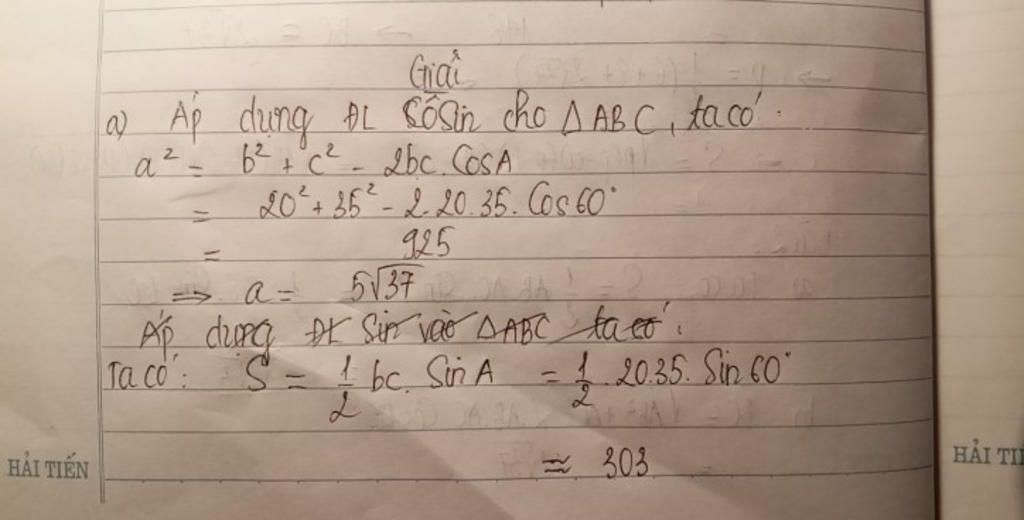 Giải
a) Áp dụng ĐL Cô sin cho ΔABC, ta có:
a² = b² + c² - 2bc. CosA
= 20² + 35² - 2.20.35. Cos60°
= 925
⇒ a = 5√37
Áp dụng ĐL Sin vào ΔABC ta có:
Ta có: S = 1/2 bc. SinA = 1/2 .20.35. Sin60°
≈ 303
HẢI TIẾN
HẢI TI